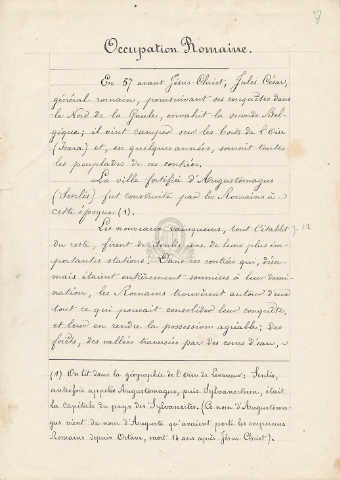 7
Occupation Romaine.
En 57 avant Jésus-Christ, Jules César,
général romain, poursuivant ses conquêtes dans
le Nord de la Gaule, envahit la seconde Bel-
gique; il vient camper sur les bords de l'Oise
(Isara) et, en quelques années, soumit toutes
les peuplades de ces contrées.
La ville fortifiée d'Augustomagus
(Senlis) fut construite par les Romains à
cette époque (1).
Les nouveaux vainqueurs, tout l'établit
du reste, firent de une de leurs plus im-
portantes stations. Dans ces contrées qui, désor-
mais étaient entièrement soumises à leur domi-
nation, les Romains trouvèrent autour d'eux
tout ce qui pouvait consolider leur conquête,
et leur en rendre la possession agréable; des
forêts, des vallées traversées par des cours d'eau,
(1) On lit dans la géographie de l'Oise de : Senlis,
autrefois appelée Augustomagus, puis Sylvanectum, était
la capitale du pays des Sylvanectes. (Ce nom d'Augustoma-
gus vient du nom d'Auguste qu'avaient porté les empereurs
Romains depuis Octave, mort 14 ans après Jésus Christ).